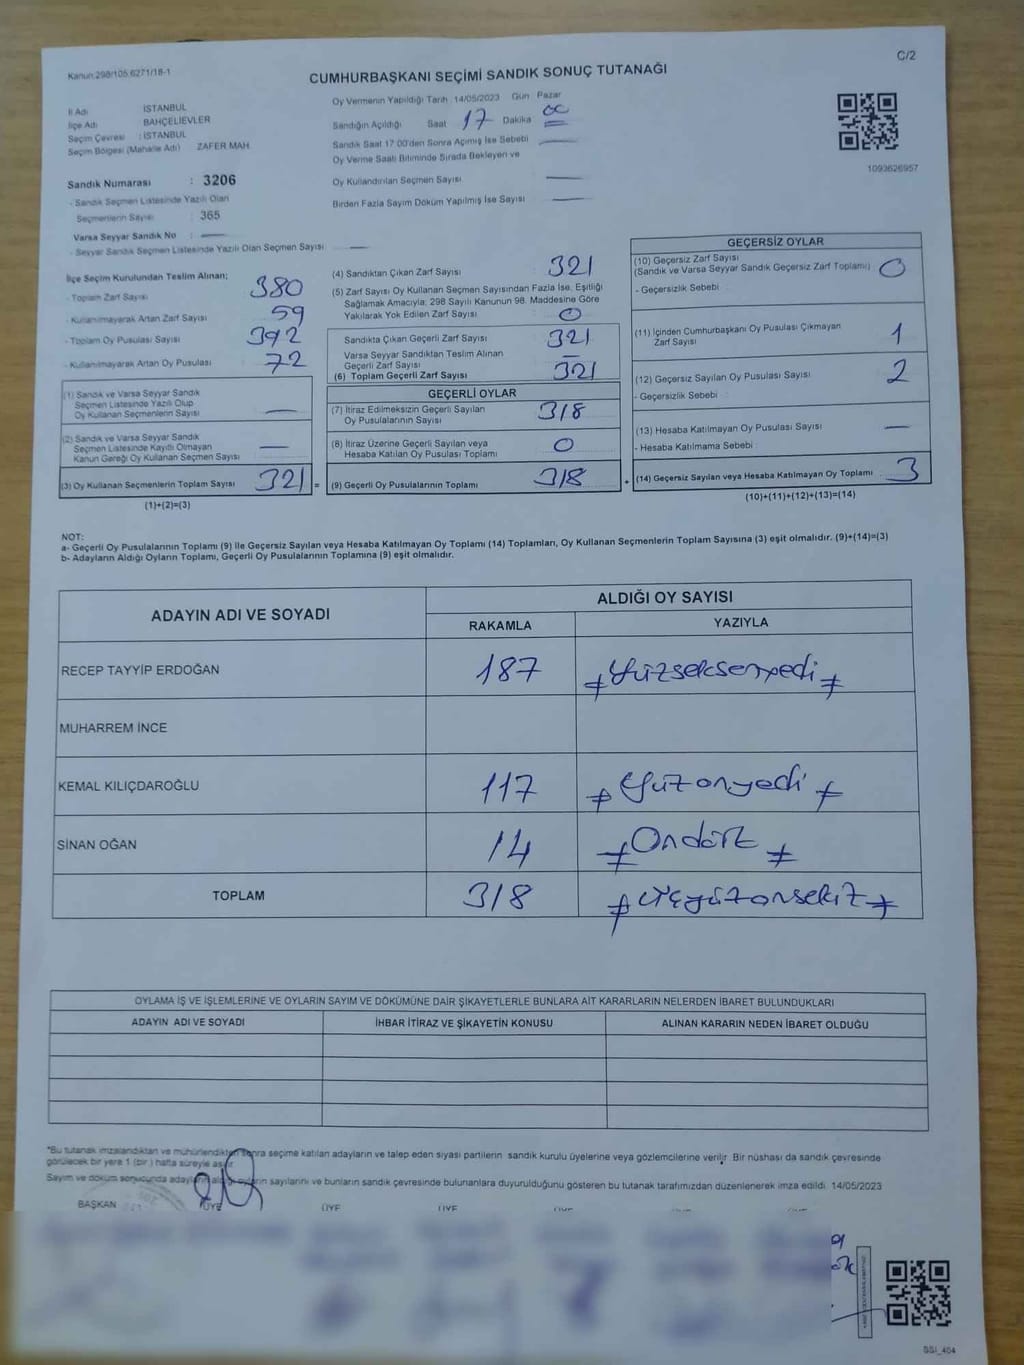 Kanun:298/105,6271/18-1
C/2
CUMHURBAŞKANI SEÇİMİ SANDIK SONUÇ TUTANAĞI
İl Adı : İSTANBUL
İlçe Adı : BAHÇELİEVLER
Seçim Çevresi : İSTANBUL
Seçim Bölgesi (Mahalle Adı) ZAFER MAH.
Sandık Numarası : 3206
- Sandık Seçmen Listesinde Yazılı Olan
Seçmenlerin Sayısı : 365
Varsa Seyyar Sandık No : —
- Seyyar Sandık Seçmen Listesinde Yazılı Olan Seçmen Sayısı —
Oy Vermenin Yapıldığı Tarih 14/05/2023 Gün Pazar
Sandığın Açıldığı Saat 17 Dakika 00
Sandık Saat 17:00'den Sonra Açılmış İse Sebebi —
Oy Verme Saati Bitiminde Sırada Bekleyen ve
Oy Kullandırılan Seçmen Sayısı —
Birden Fazla Sayım Döküm Yapılmış İse Sayısı —
1093626957
İlçe Seçim Kurulundan Teslim Alınan;
- Toplam Zarf Sayısı 380
- Kullanılmayarak Artan Zarf Sayısı 59
- Toplam Oy Pusulası Sayısı 392
- Kullanılmayarak Artan Oy Pusulası 72
(1) Sandık ve Varsa Seyyar Sandık
Seçmen Listesinde Yazılı Olup
Oy Kullanan Seçmenlerin Sayısı —
(2) Sandık ve Varsa Seyyar Sandık
Seçmen Listesinde Kayıtlı Olmayan
Kanun Gereği Oy Kullanan Seçmen Sayısı —
(3) Oy Kullanan Seçmenlerin Toplam Sayısı 321 =
(1)+(2)=(3)
(4) Sandıktan Çıkan Zarf Sayısı 321
(5) Zarf Sayısı Oy Kullanan Seçmen Sayısından Fazla İse, Eşitliği
Sağlamak Amacıyla; 298 Sayılı Kanunun 98. Maddesine Göre
Yakılarak Yok Edilen Zarf Sayısı 0
Sandıkta Çıkan Geçerli Zarf Sayısı 321
Varsa Seyyar Sandıktan Teslim Alınan
Geçerli Zarf Sayısı —
(6) Toplam Geçerli Zarf Sayısı 321
GEÇERLİ OYLAR
(7) İtiraz Edilmeksizin Geçerli Sayılan
Oy Pusulalarının Sayısı 318
(8) İtiraz Üzerine Geçerli Sayılan veya
Hesaba Katılan Oy Pusulası Toplamı 0
(9) Geçerli Oy Pusulalarının Toplamı 318 +
GEÇERSİZ OYLAR
(10) Geçersiz Zarf Sayısı
(Sandık ve Varsa Seyyar Sandık Geçersiz Zarf Toplamı) 0
- Geçersizlik Sebebi :
(11) İçinden Cumhurbaşkanı Oy Pusulası Çıkmayan
Zarf Sayısı 1
(12) Geçersiz Sayılan Oy Pusulası Sayısı 2
- Geçersizlik Sebebi :
(13) Hesaba Katılmayan Oy Pusulası Sayısı —
- Hesaba Katılmama Sebebi :
(14) Geçersiz Sayılan veya Hesaba Katılmayan Oy Toplamı 3
(10)+(11)+(12)+(13)=(14)
NOT:
a- Geçerli Oy Pusulalarının Toplamı (9) ile Geçersiz Sayılan veya Hesaba Katılmayan Oy Toplamı (14) Toplamları, Oy Kullanan Seçmenlerin Toplam Sayısına (3) eşit olmalıdır. (9)+(14)=(3)
b- Adayların Aldığı Oyların Toplamı, Geçerli Oy Pusulalarının Toplamına (9) eşit olmalıdır.
ADAYIN ADI VE SOYADI
ALDIĞI OY SAYISI
RAKAMLA YAZIYLA
RECEP TAYYİP ERDOĞAN 187 ≠Yüzseksenyedi≠
MUHARREM İNCE
KEMAL KILIÇDAROĞLU 117 ≠Yüzonyedi≠
SİNAN OĞAN 14 ≠Ondört≠
TOPLAM 318 ≠Üçyüzonsekiz≠
OYLAMA İŞ VE İŞLEMLERİNE VE OYLARIN SAYIM VE DÖKÜMÜNE DAİR ŞİKAYETLERLE BUNLARA AİT KARARLARIN NELERDEN İBARET BULUNDUKLARI
ADAYIN ADI VE SOYADI İHBAR İTİRAZ VE ŞİKAYETİN KONUSU ALINAN KARARIN NEDEN İBARET OLDUĞU
*Bu tutanak imzalandıktan ve mühürlendikten sonra seçime katılan adayların ve talep eden siyasi partilerin sandık kurulu üyelerine veya gözlemcilerine verilir. Bir nüshası da sandık çevresinde
görülecek bir yere 1 (bir) hafta süreyle asılır.
Sayım ve döküm sonucunda adayların aldığı oyların sayılarını ve bunların sandık çevresinde bulunanlara duyurulduğunu gösteren bu tutanak tarafımızdan düzenlenerek imza edildi. 14/05/2023
BAŞKAN ÜYE ÜYE ÜYE
SSI_404